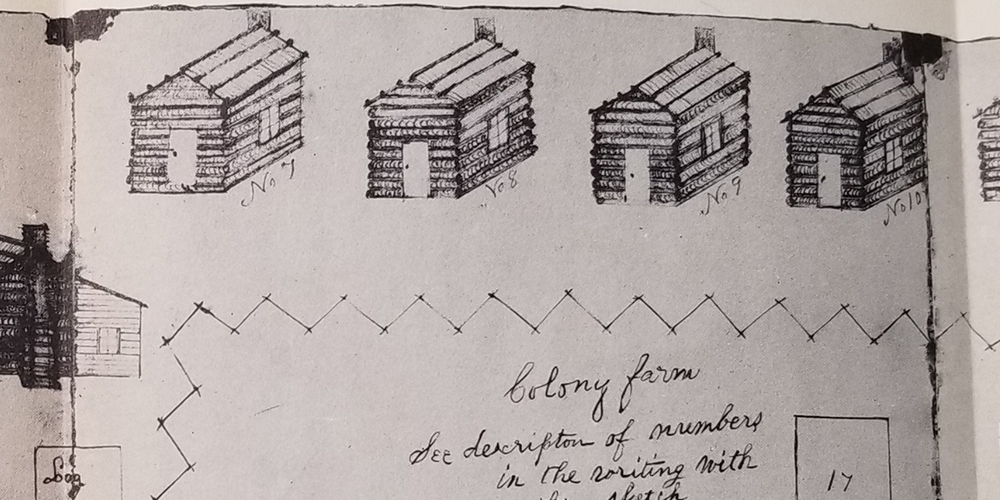 No 7
No 8
No 9
No 10
Colony farm
See descripton of numbers
in the writing with
this sketch
17